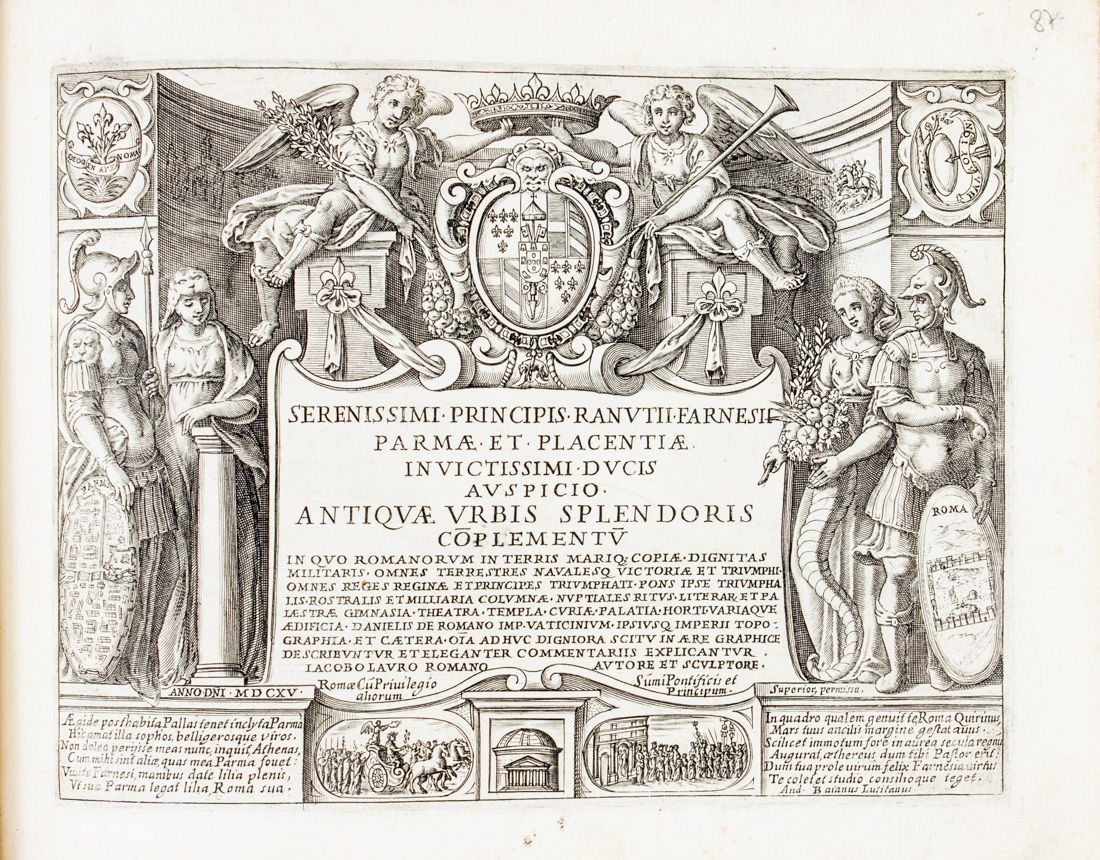 87
SERENISSIMI · PRINCIPIS · RANVTII · FARNESII
PARMÆ · ET · PLACENTIÆ.
INVICTISSIMI · DVCIS
AVSPICIO ·
ANTIQVÆ VRBIS SPLENDORIS
CŌPLEMENTV̄
IN QVO ROMANORVM IN TERRIS MARIQ; COPIÆ · DIGNITAS
MILITARIS · OMNES TERRESTRES NAVALESQ VICTORIÆ ET TRIVMPHI ·
OMNES REGES REGINÆ ET PRINCIPES TRIVMPHATI · PONS IPSE TRIVMPHA
LIS · ROSTRALIS ET MILLIARIA COLVMNÆ · NVPTIALES RITVS · LITERAR; ET PA
LÆSTRÆ GIMNASIA · THEATRA · TEMPLA · CVRIÆ · PALATIA · HORTI · VARIAQVE
ÆDIFICIA · DANIELIS DE ROMANO IMP · VATICINIVM · IPSIVSQ IMPERII TOPO-
GRAPHIA · ET CÆTERA · OĪA AD HVC DIGNIORA SCITV IN ÆRE GRAPHICE
DESCRIBVNTVR ET ELEGANTER COMMENTARIIS EXPLICANTVR ·
IACOBO LAVRO ROMANO AVTORE ET SCVLPTORE ·
PARMA
ROMA
ANNO · DÑI · MDCXV ·
Romæ Cū Priuilegio
aliorum
Sūmi Pontificis et
Principum ·
Superior, permissu ·
Ægide posthabita Pallas tenet inclyta Parmā
Hic amat illa sophos, belligerosque viros ·
Non doleo perijsse meas nunc, inquit, Athenas,
Cum mihi sint aliæ, quas mea Parma fouet :
Viuite Farnesi, manibus date lilia plenis,
Vt sua Parma legat lilia, Roma sua ·
In quadro qualem genuit te Roma Quirinus,
Mars tuus ancilis margine gestat auus ·
Scilicet immotum fore in aurea secula regnū
Augurat, æthereus dum tibi Pastor erit :
Dum tua prole uirum felix Farnesia uirtus
Te colet et studio consilioque teget ·
And · Baianus Lusitanus